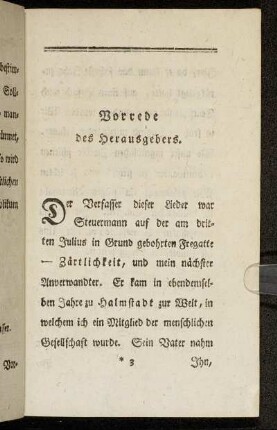 Vorrede
des Herausgebers.
Der Verfasser dieser Lieder war
Steuermann auf der am drit-
ten Julius in Grund gebohrten Fregatte
— Zärtlichkeit, und mein nächster
Anverwandter. Er kam in ebendemsel-
ben Jahre zu Halmstadt zur Welt, in
welchem ich ein Mitglied der menschlichen
Gesellschaft wurde. Sein Vater nahm
* 3
Ihn,